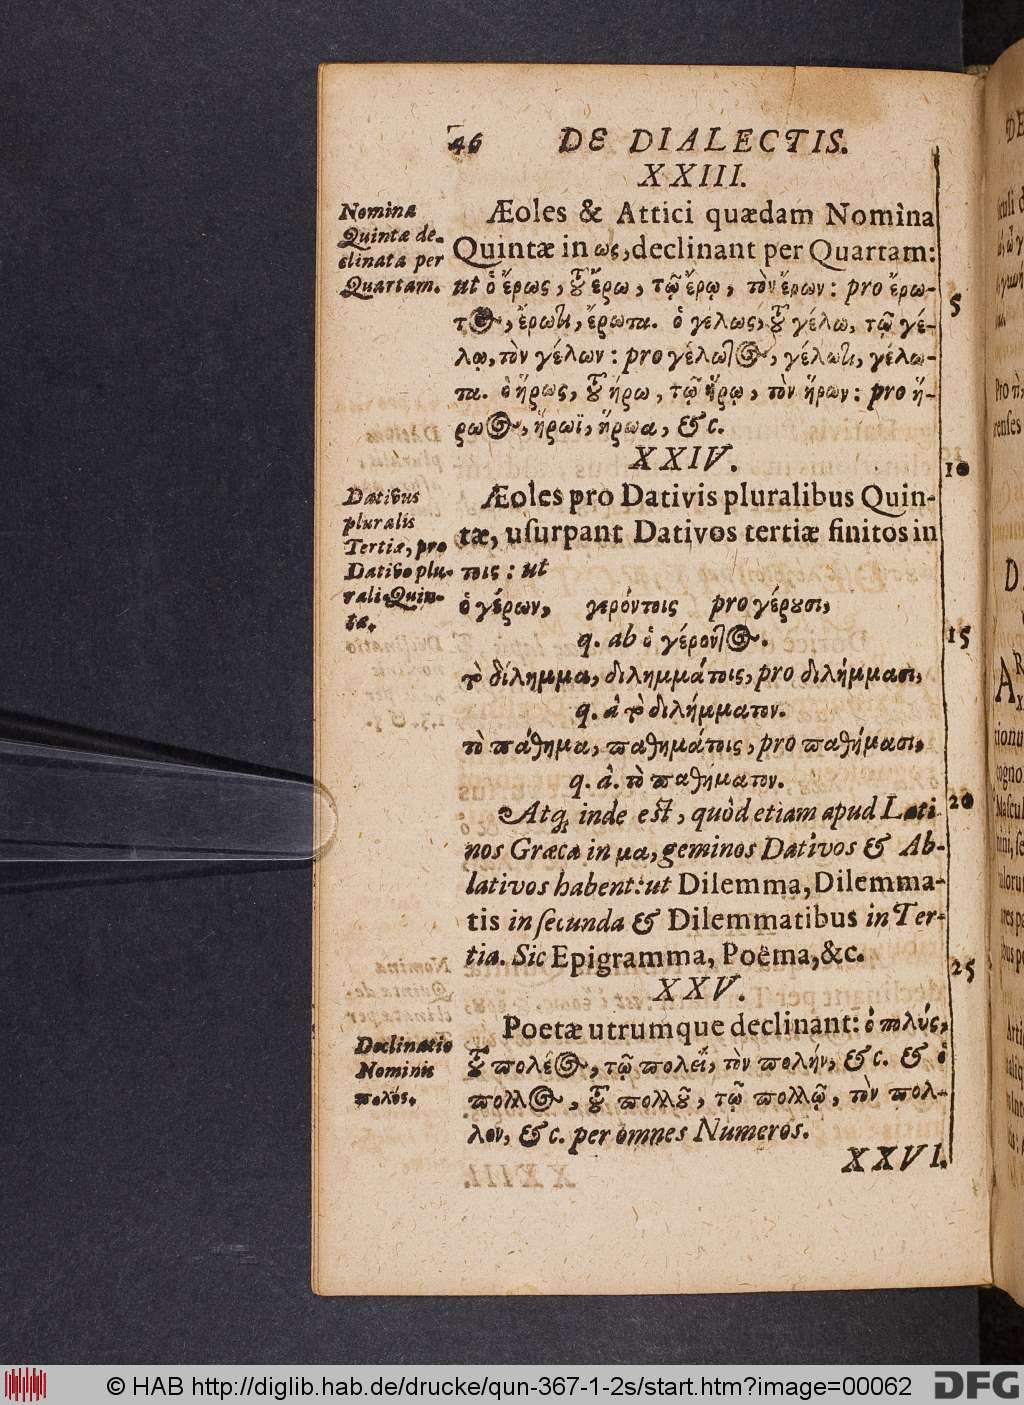 46 DE DIALECTIS.
XXIII.
Nomina
Quintæ de-
clinata per
Quartam.
Æoles & Attici quædam Nomina
Quintæ in ως, declinant per Quartam:
ut ὁ ἔρως, τοῦ ἔρω, τῷ ἔρῳ, τὸν ἔρων: pro ἔρω-
τος, ἔρωτι, ἔρωτα. ὁ γέλως, τοῦ γέλω, τῷ γέ-
λῳ, τὸν γέλων: pro γέλωτος, γέλωτι, γέλω-
τα. ὁ ἥρως, τοῦ ἥρω, τῷ ἥρῳ, τὸν ἥρων: pro ἥ-
ρωος, ἥρωϊ, ἥρωα, &c.
5
XXIV.
10
Dativus
pluralis
Tertiæ, pro
Dativo plu-
rali Quin-
tæ.
Æoles pro Dativis pluralibus Quin-
tæ, uſurpant Dativos tertiæ finitos in
τοις: ut
ὁ γέρων, γερόντοις pro γέρουσι,
q. ab ὁ γέροντος.
15
τὸ δίλημμα, διλημμάτοις, pro διλήμμασι,
q. à τὸ διλήμματον.
τὸ πάθημα, παθημάτοις, pro παθήμασι,
q. à. τὸ παθήματον.
Atq; inde eſt, quòd etiam apud Lati
20
nos Græca in μα, geminos Dativos & Ab-
lativos habent: ut Dilemma, Dilemma-
tis in ſecunda & Dilemmatibus in Ter-
tia. Sic Epigramma, Poëma, &c.
25
XXV.
Declinatio
Nominis
πολύς.
Poetæ utrumque declinant: ὁ πολύς,
τοῦ πολέος, τῷ πολεῖ, τὸν πολήν, &c. & ὁ
πολλος, τοῦ πολλοῦ, τῷ πολλῷ, τὸν πολ-
λον, &c. per omnes Numeros.
XXVI.
© HAB http://diglib.hab.de/drucke/qun-367-1-2s/start.htm?image=00062
DFG